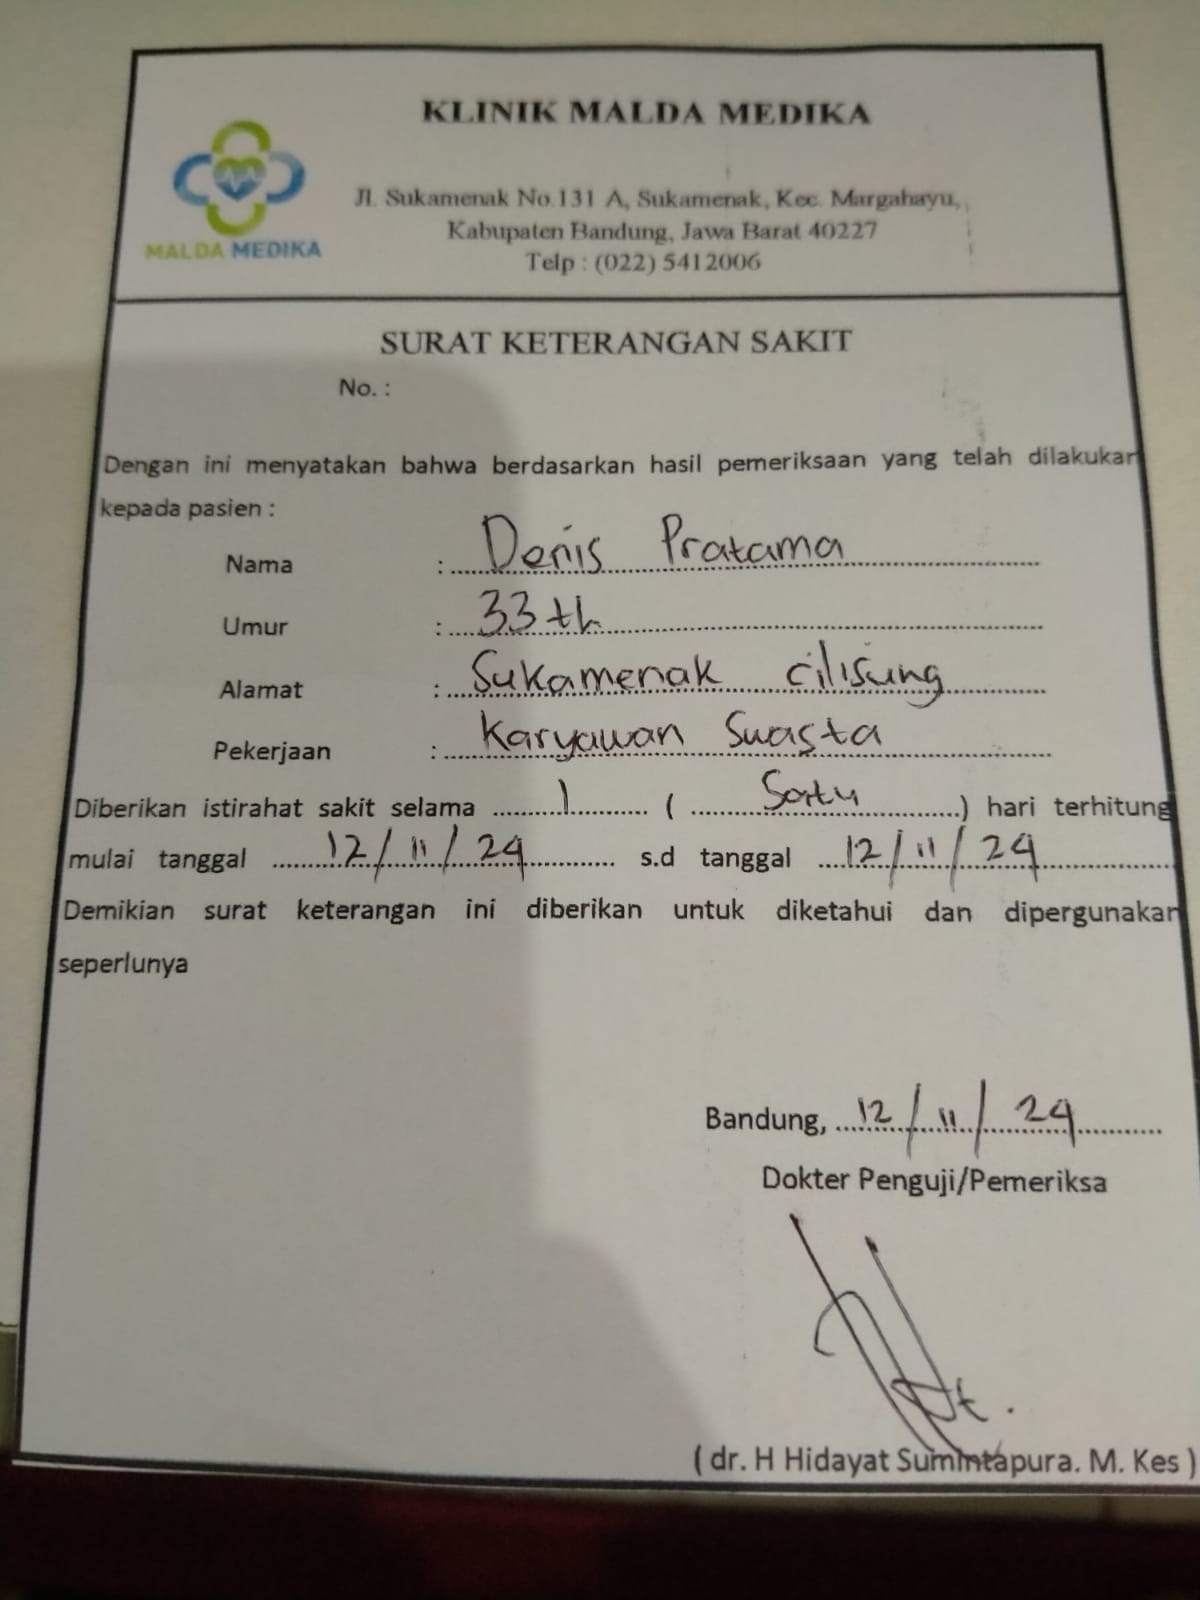 KLINIK MALDA MEDIKA
Jl. Sukamenak No.131 A, Sukamenak, Kec. Margahayu,
Kabupaten Bandung, Jawa Barat 40227
Telp : (022) 5412006
MALDA MEDIKA
SURAT KETERANGAN SAKIT
No. :
Dengan ini menyatakan bahwa berdasarkan hasil pemeriksaan yang telah dilakukan
kepada pasien :
Nama : Denis Pratama
Umur : 33 th
Alamat : Sukamenak cilisung
Pekerjaan : Karyawan Swasta
Diberikan istirahat sakit selama 1 ( Satu ) hari terhitung
mulai tanggal 12/11/24 s.d tanggal 12/11/24
Demikian surat keterangan ini diberikan untuk diketahui dan dipergunakan
seperlunya
Bandung, 12/11/24
Dokter Penguji/Pemeriksa
( dr. H Hidayat Sumintapura. M. Kes )